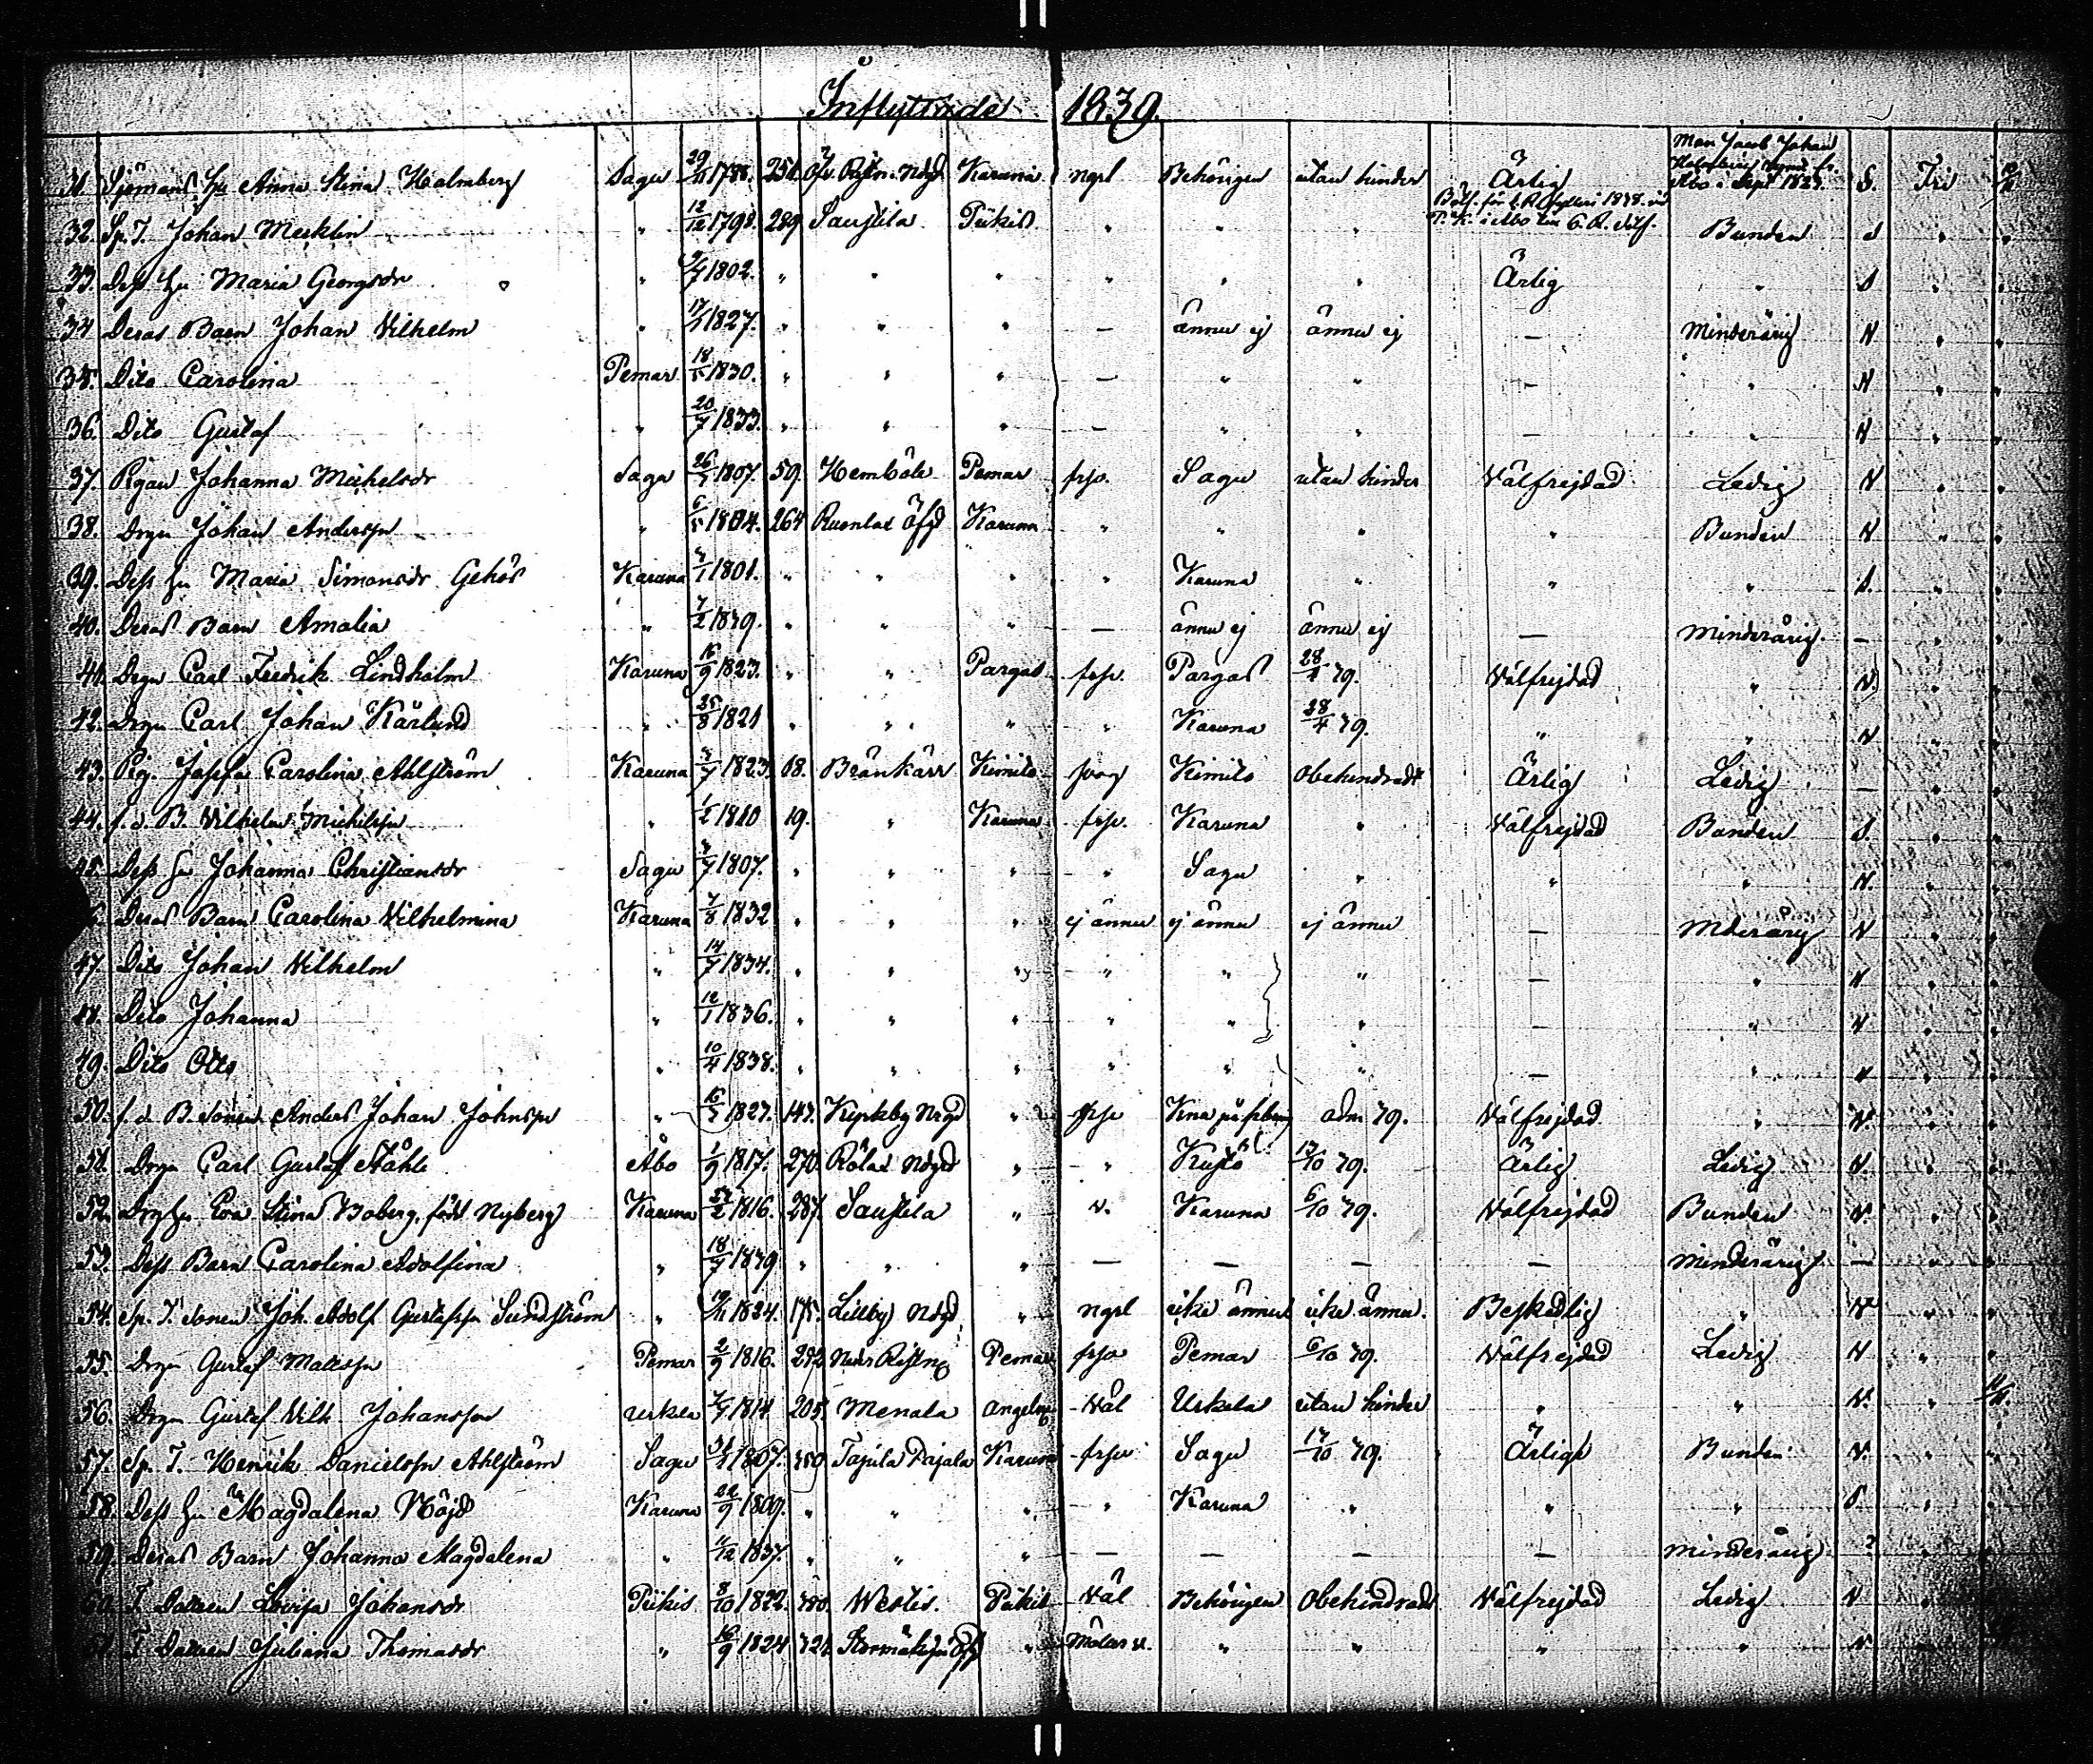 Inflyttade 1839.
31. Sjömans hu Anna Stina Holmberg Sagu 29/11 1788. 251. Öfv. Ristn. Ndgd Karuna ngrl Behörigen utan hinder Ärlig Man Jacob Johan Holmberg Åbo i Sept 1823. S. Fri
32. Sp. T. Johan Mecklin " 12/12 1798. 289 Saustila Piikis " " " Bunden S " "
33. Dess hu Maria Georgsdr " /7 1802. " " " " " " Ärlig " S " "
34 Deras Barn Johan Vilhelm " 17/5 1827. " " " — ännu ej ännu ej — Minderårig N " "
35. Dito Carolina Pemar 18/5 1830. " " " — " " — " N " "
36. Dito Gustaf " 20/7 1833. " " " — " " — " N " "
37. Pigan Johanna Michelsdr Sagu 26/ 1807. 59. Hemböle Pemar frsv. Sagu utan hinder Välfrejdad Ledig N " "
38. Drgn Johan Anderssn " 6/5 1804. 264 Ruonlax Öfgd Karuna " " " " Bunden N " "
39. Dess hu Maria Simonsdr Gehör Karuna /1 1801. " " " " Karuna " " " S. " "
40. Deras Barn Amalia " 7/2 1839. " " " — ännu ej ännu ej — Minderårig. — " "
41. Drgn Carl Fredrik Lindholm Karuna 16/9 1823. " " Pargas frsv. Pargas 28/4 39. Välfrejdad " N. " "
42. Drgn Carl Johan Karlund " 25/8 1821 " " " " Karuna 28/4 39. " " N " "
43. Pig. Josefa Carolina Ahlström Karuna /7 1823. 18. Bränkärr Kimito svag Kimito Obehindradt Ärlig Ledig — " "
44. f. d. B. Vilhelm Michelssn " 1/2 1810 19. " Karuna frsv. Karuna " Välfrejdad Bunden S. " "
45. Dess hu Johanna Christiansdr Sagu /7 1807. " " " " Sagu " " " N. " "
Deras Barn Carolina Vilhelmina Karuna 7/8 1832 " " " ej ännu ej ännu ej ännu — Mderårig N " "
47. Dito Johan Vilhelm " 14/7 1834. " " " " " " — " N " "
48. Dito Johanna " 12/1 1836. " " " " " " — " N " "
49. Dito Otto " 10/4 1838. " " " " " " — " N " "
50. f. d. B. Sonen Anders Johan Johnssn " 16/ 1827. 147. Kyrkby Nrgd " frsv Kna adm 39. Välfrejdad " N. " "
51. Drgn Carl Gustaf Ståhle Åbo 1/9 1817. 270. Rölax Ndgd " " Kustö 13/10 39. Ärlig Ledig N. " "
52. Drghu Eva Stina Boberg, född Nyberg Karuna /2 1816. 287. Saustila " v. Karuna 6/10 39. Välfrejdad Bunden N. " "
53. Dess Barn Carolina Adolfina " 18/7 1839 " " " — — — — Minderårig — " "
54. Sp. T. Sonen Joh. Adolf Gustafssn Sundström " /11 1824. 175. Lillby Ndgd " ngrl icke ännu icke ännu. Beskedlig " N " "
55. Drgn Gustaf Mattssn Pemar 2/9 1816. 242 Nedr Ristnp Pemar frsv Pemar 6/10 39. Välfrejdad Ledig N " "
56. Drgn Gustaf Vilh. Johansson Urkela /7 1814 205. Menala Angelnp Väl Urkela utan hinder " " N.
57. Sp. T. Henrik Danielssn Ahlström Sagu 31/ 1807. Tajula Pajala Karuna frsv Sagu 17/10 39. Ärlige Bunden N. " "
58. Dess hu Magdalena Höjd Karuna 22/9 1809. " " " " Karuna " " " S. " "
59. Deras Barn Johanna Magdalena " /12 1837. " " " — — — — Minderårig ? " "
60. T. Dottren Lovisa Johansdr Piikis 8/10 1822. Westis. Piikis Väl Behörigen Obehindrad Välfrejdad Ledig N " "
T Dottren Juliana Thomasdr " 16/9 1824 321. " Målar v. " " " " N " "